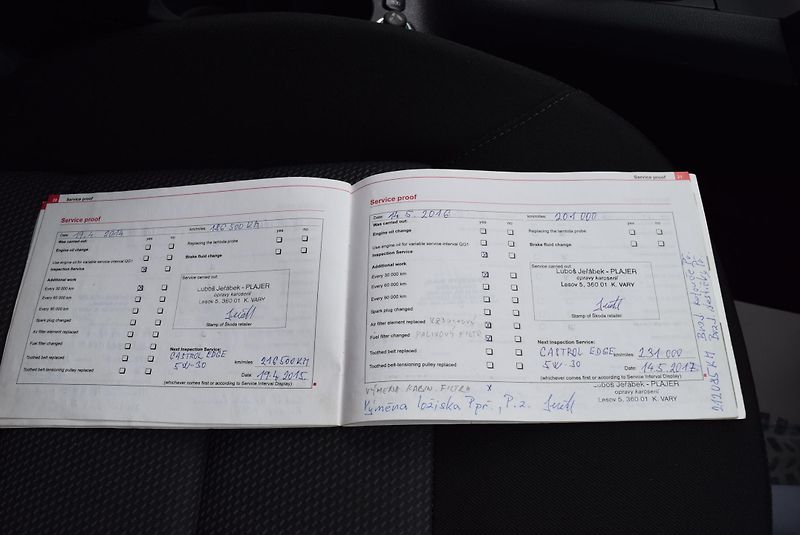 20 Service proof
Service proof
Date: 19.4. 2014 km/miles: 186 500 KM
Was carried out: yes no yes no
Engine oil change Replacing the lambda probe
Use engine oil for variable service interval QG1 Brake fluid change
Inspection Service x
Additional work
Every 30 000 km x
Every 60 000 km
Every 90 000 km
Spark plug changed
Air filter element replaced
Fuel filter changed
Toothed belt replaced
Toothed belt-tensioning pulley replaced
Service carried out:
Luboš Jeřábek - PLAJER
opravy karoserií
Lesov 5, 360 01 K. VARY
Stamp of Škoda retailer
Next Inspection Service:
CASTROL EDGE km/miles 216 500 KM
5W-30
Date: 19.4. 2015
(whichever comes first or according to Service Interval Display)
Service proof 21
Service proof
Date: 14.5. 2016 km/miles: 201 000
Was carried out: yes no yes no
Engine oil change Replacing the lambda probe
Use engine oil for variable service interval QG1 Brake fluid change
Inspection Service x
Additional work
Every 30 000 km x
Every 60 000 km
Every 90 000 km
Spark plug changed
Air filter element replaced x
Fuel filter changed x
Toothed belt replaced
Toothed belt-tensioning pulley replaced
Service carried out:
Luboš Jeřábek - PLAJER
opravy karoserií
Lesov 5, 360 01 K. VARY
Stamp of Škoda retailer
Next Inspection Service:
CASTROL EDGE km/miles 231 000
5W-30
Date: 14.5. 2017
(whichever comes first or according to Service Interval Display)
VÝMĚNA KABIN. FILTRA x
Výměna ložiska P.př., P.z.
Luboš Jeřábek - PLAJER
opravy karoserií
Lesov 5, 360 01 K. VARY
212 085 KM